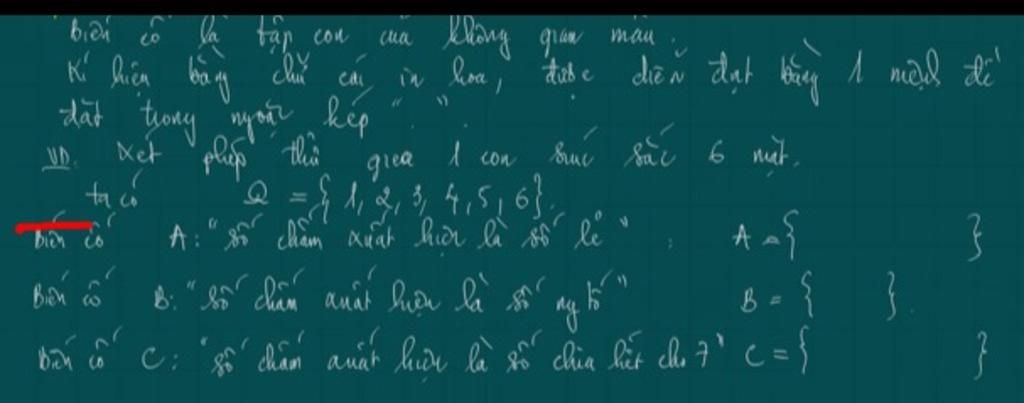 Biến cố là tập con của không gian mẫu.
Kí hiệu bằng chữ cái in hoa, được diễn đạt bằng 1 mệnh đề
đặt trong ngoặc kép " ".
VD. Xét phép thử gieo 1 con súc sắc 6 mặt.
ta có Ω = { 1, 2, 3, 4, 5, 6 }.
Biến cố A: "số chấm xuất hiện là số lẻ" : A = { }
Biến cố B: "số chấm xuất hiện là số ng tố" B = { }.
Biến cố C: "số chấm xuất hiện là số chia hết cho 7" C = { }